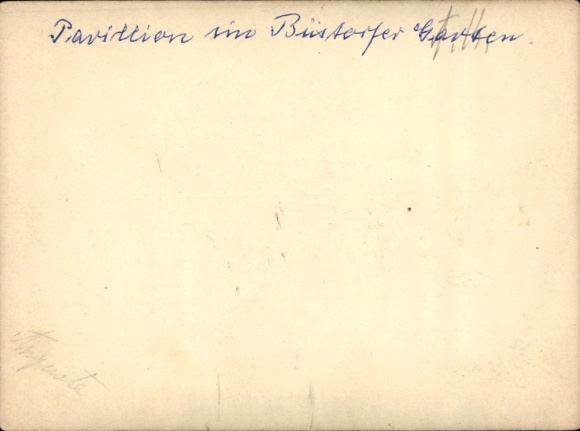 Pavillion im Büstorfer Garten.